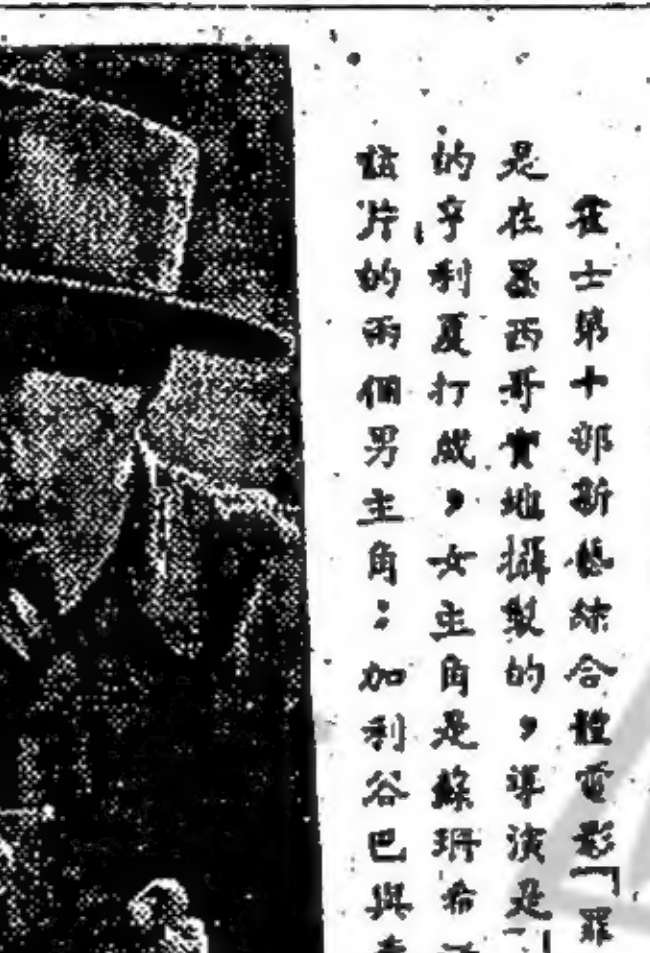 霍士第十部新藝綜合體電影「罪
是在墨西哥實地攝製的，導演是「
的亨利夏打威，女主角是蘇珊希
片的兩個男主角：加利谷巴與